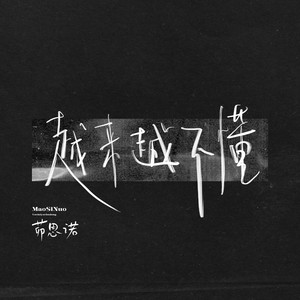 越来越不懂
MaoSiNuo
茆思诺